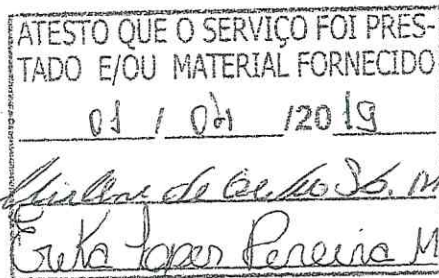 ATESTO QUE O SERVIÇO FOI PRES-
TADO E/OU MATERIAL FORNECIDO
01 / 04 /2019
de
Erika Lopes Pereira M